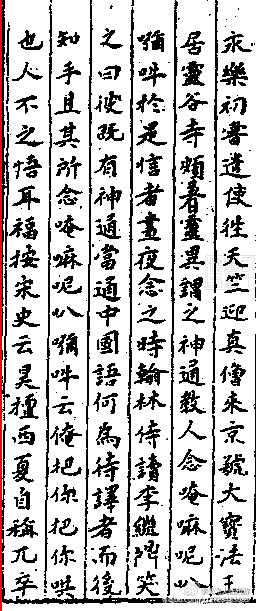 永樂初嘗遣使徃天竺迎真僧来京號大寶法王
居靈谷寺頗著靈異謂之神通教人念唵嘛呢叭
𡄣吽扵是信者晝夜念之時翰林侍讀李繼鼎笑
之曰彼既有神通當通中國語何為待譯者而後
知乎且其所念唵嘛呢叭𡄣吽云俺把你把你哄
也人不之悟耳福按宋史云昊種西夏自稱兀卒